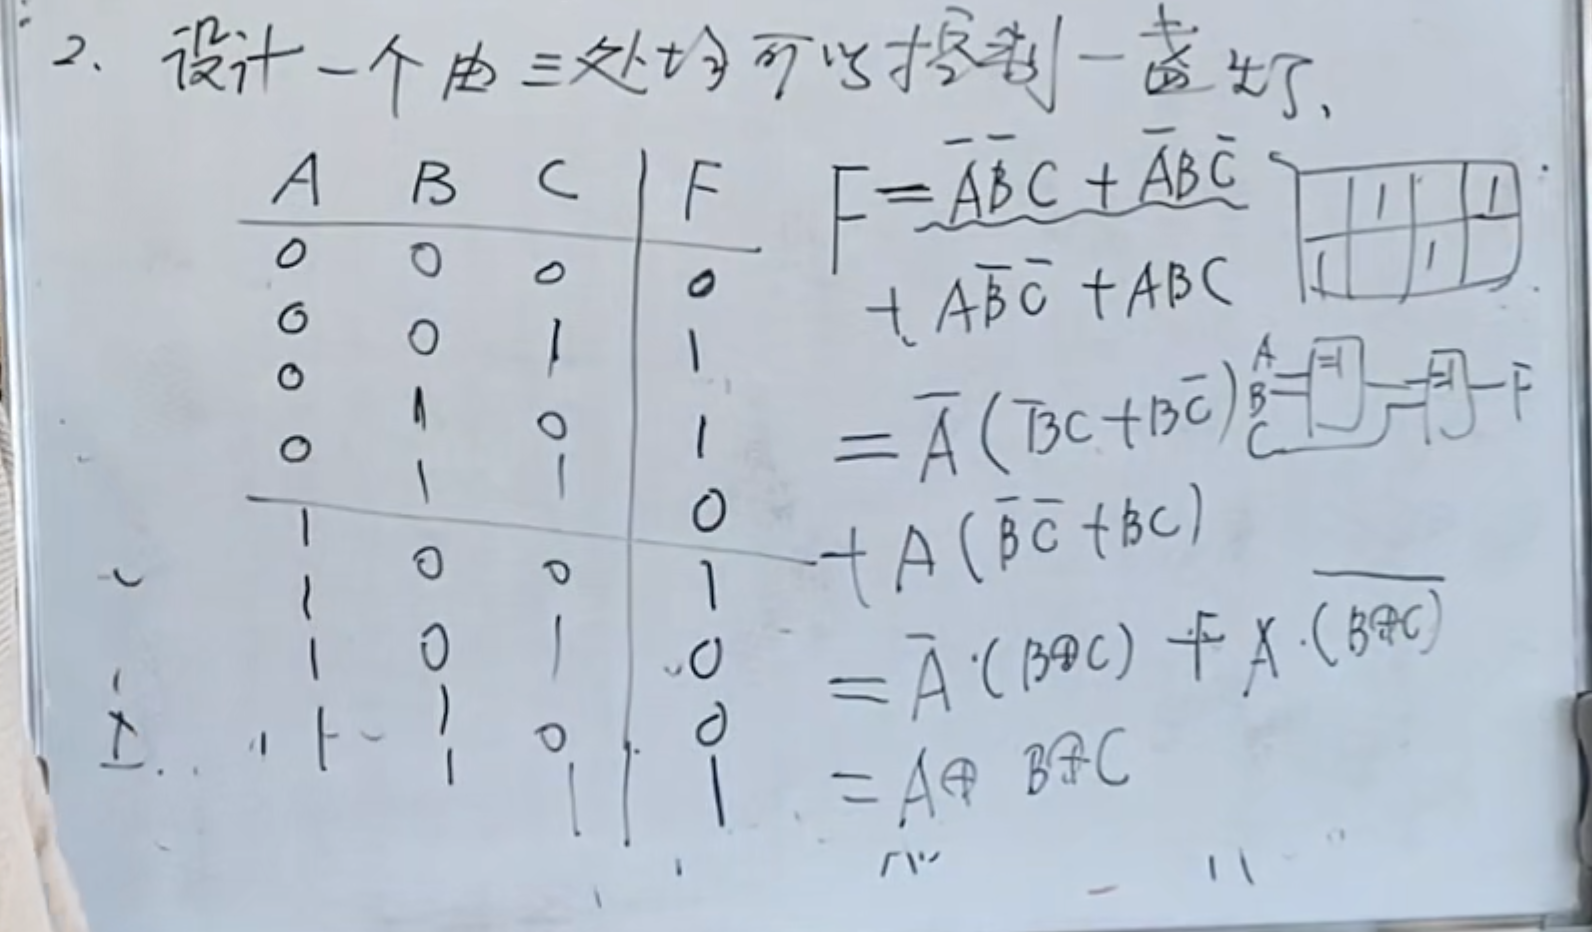 2. 设计一个由三处均可以控制一盏灯、
A B C F
0 0 0 0
0 0 1 1
0 1 0 1
0 1 1 0
1 0 0 1
1 0 1 0
1 1 0 0
1 1 1 1
F = A̅B̅C + A̅BC̅
+ AB̅C̅ + ABC
= A̅(B̅C + BC̅)
+ A(B̅C̅ + BC)
= A̅·(B⊕C) + A·(B⊕C)̅
= A⊕B⊕C
1 1
1 1
A
B
C
=1
=1
F